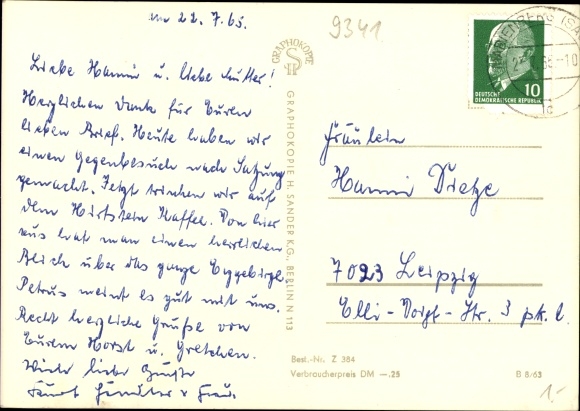 22. 7. 65.
9341
Liebe Hanni u. liebe Mutter!
Herzlichen Dank für Euren
lieben Brief. Heute haben wir
einen Gegenbesuch nach Satzung
gemacht. Jetzt trinken wir auf
dem Hirtstein Kaffee. Von hier
aus hat man einen herrlichen
Blick über das ganze Erzgebirge.
Petrus meint es gut mit uns.
Recht herzliche Grüße von
Eurem Horst u. Gretchen.
Viele liebe Grüße
GRAPHOKOPIE
GRAPHOKOPIE H. SANDER K.G., BERLIN N 113
10
DEUTSCHE
DEMOKRATISCHE REPUBLIK
Fräulein
Hanni Dietze
7023 Leipzig
Elli-Voigt-Str. 3 pt. l.
Best.-Nr. Z 384
Verbraucherpreis DM —.25
B 8/63
1.-